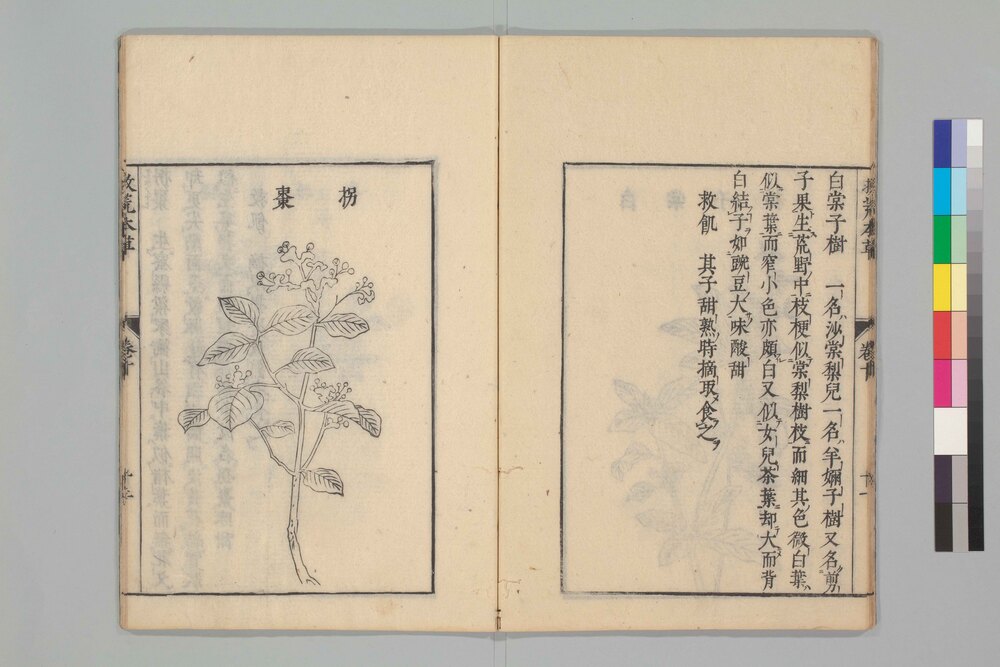 白棠子樹　一名沙棠梨兒一名羊妳子樹又名剪
子果生荒野中枝梗似棠梨樹枝而細其色微白葉
似棠葉而窄小色亦頗白又似女兒茶葉却大而背
白結子如豌豆大味酸甜
救飢　其子甜熟時摘取食之
拐
棗
救荒本草
卷十